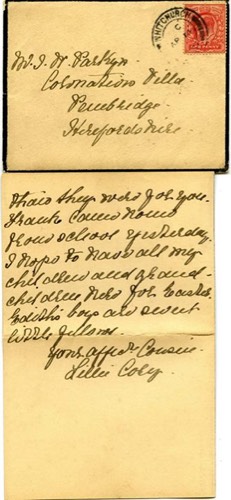 WHITCHURCH
Mr. J. W. Parkyn
Coronation Villa
Pembridge
Herefordshire
they were for you.
Frank came home
from school yesterday.
I hope to have all my
children and grand-
children here for Easter
Edith's boys are sweet
little fellows.
Your affect. Cousin
Lillie Cory.